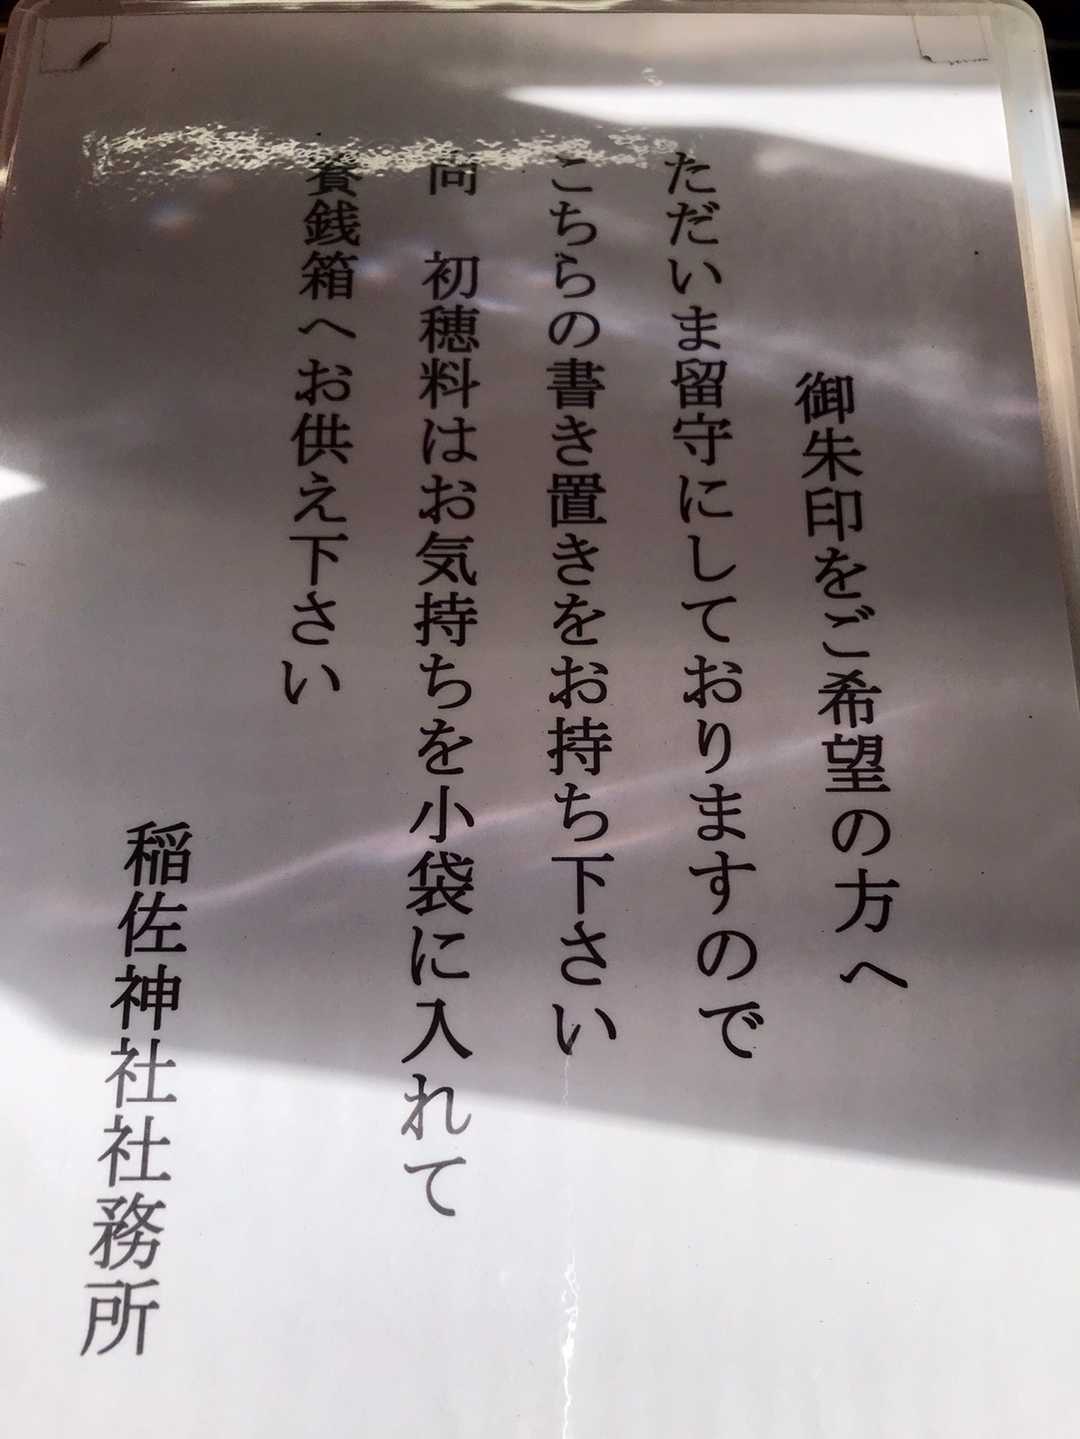 御朱印をご希望の方へ
ただいま留守にしておりますので
こちらの書き置きをお持ち下さい
尚 初穂料はお気持ちを小袋に入れて
賽銭箱へお供え下さい
稲佐神社社務所